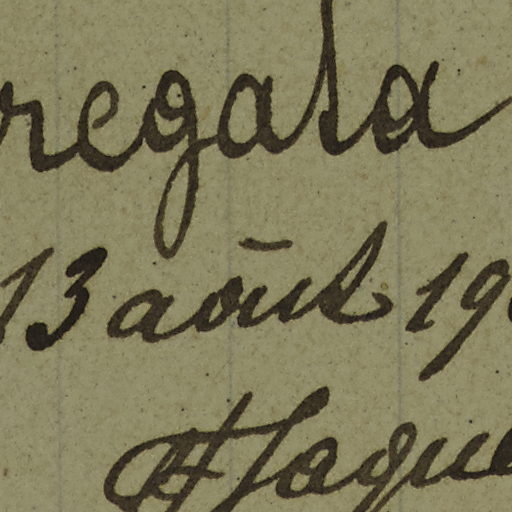 regata
13 août 19
H Jaque